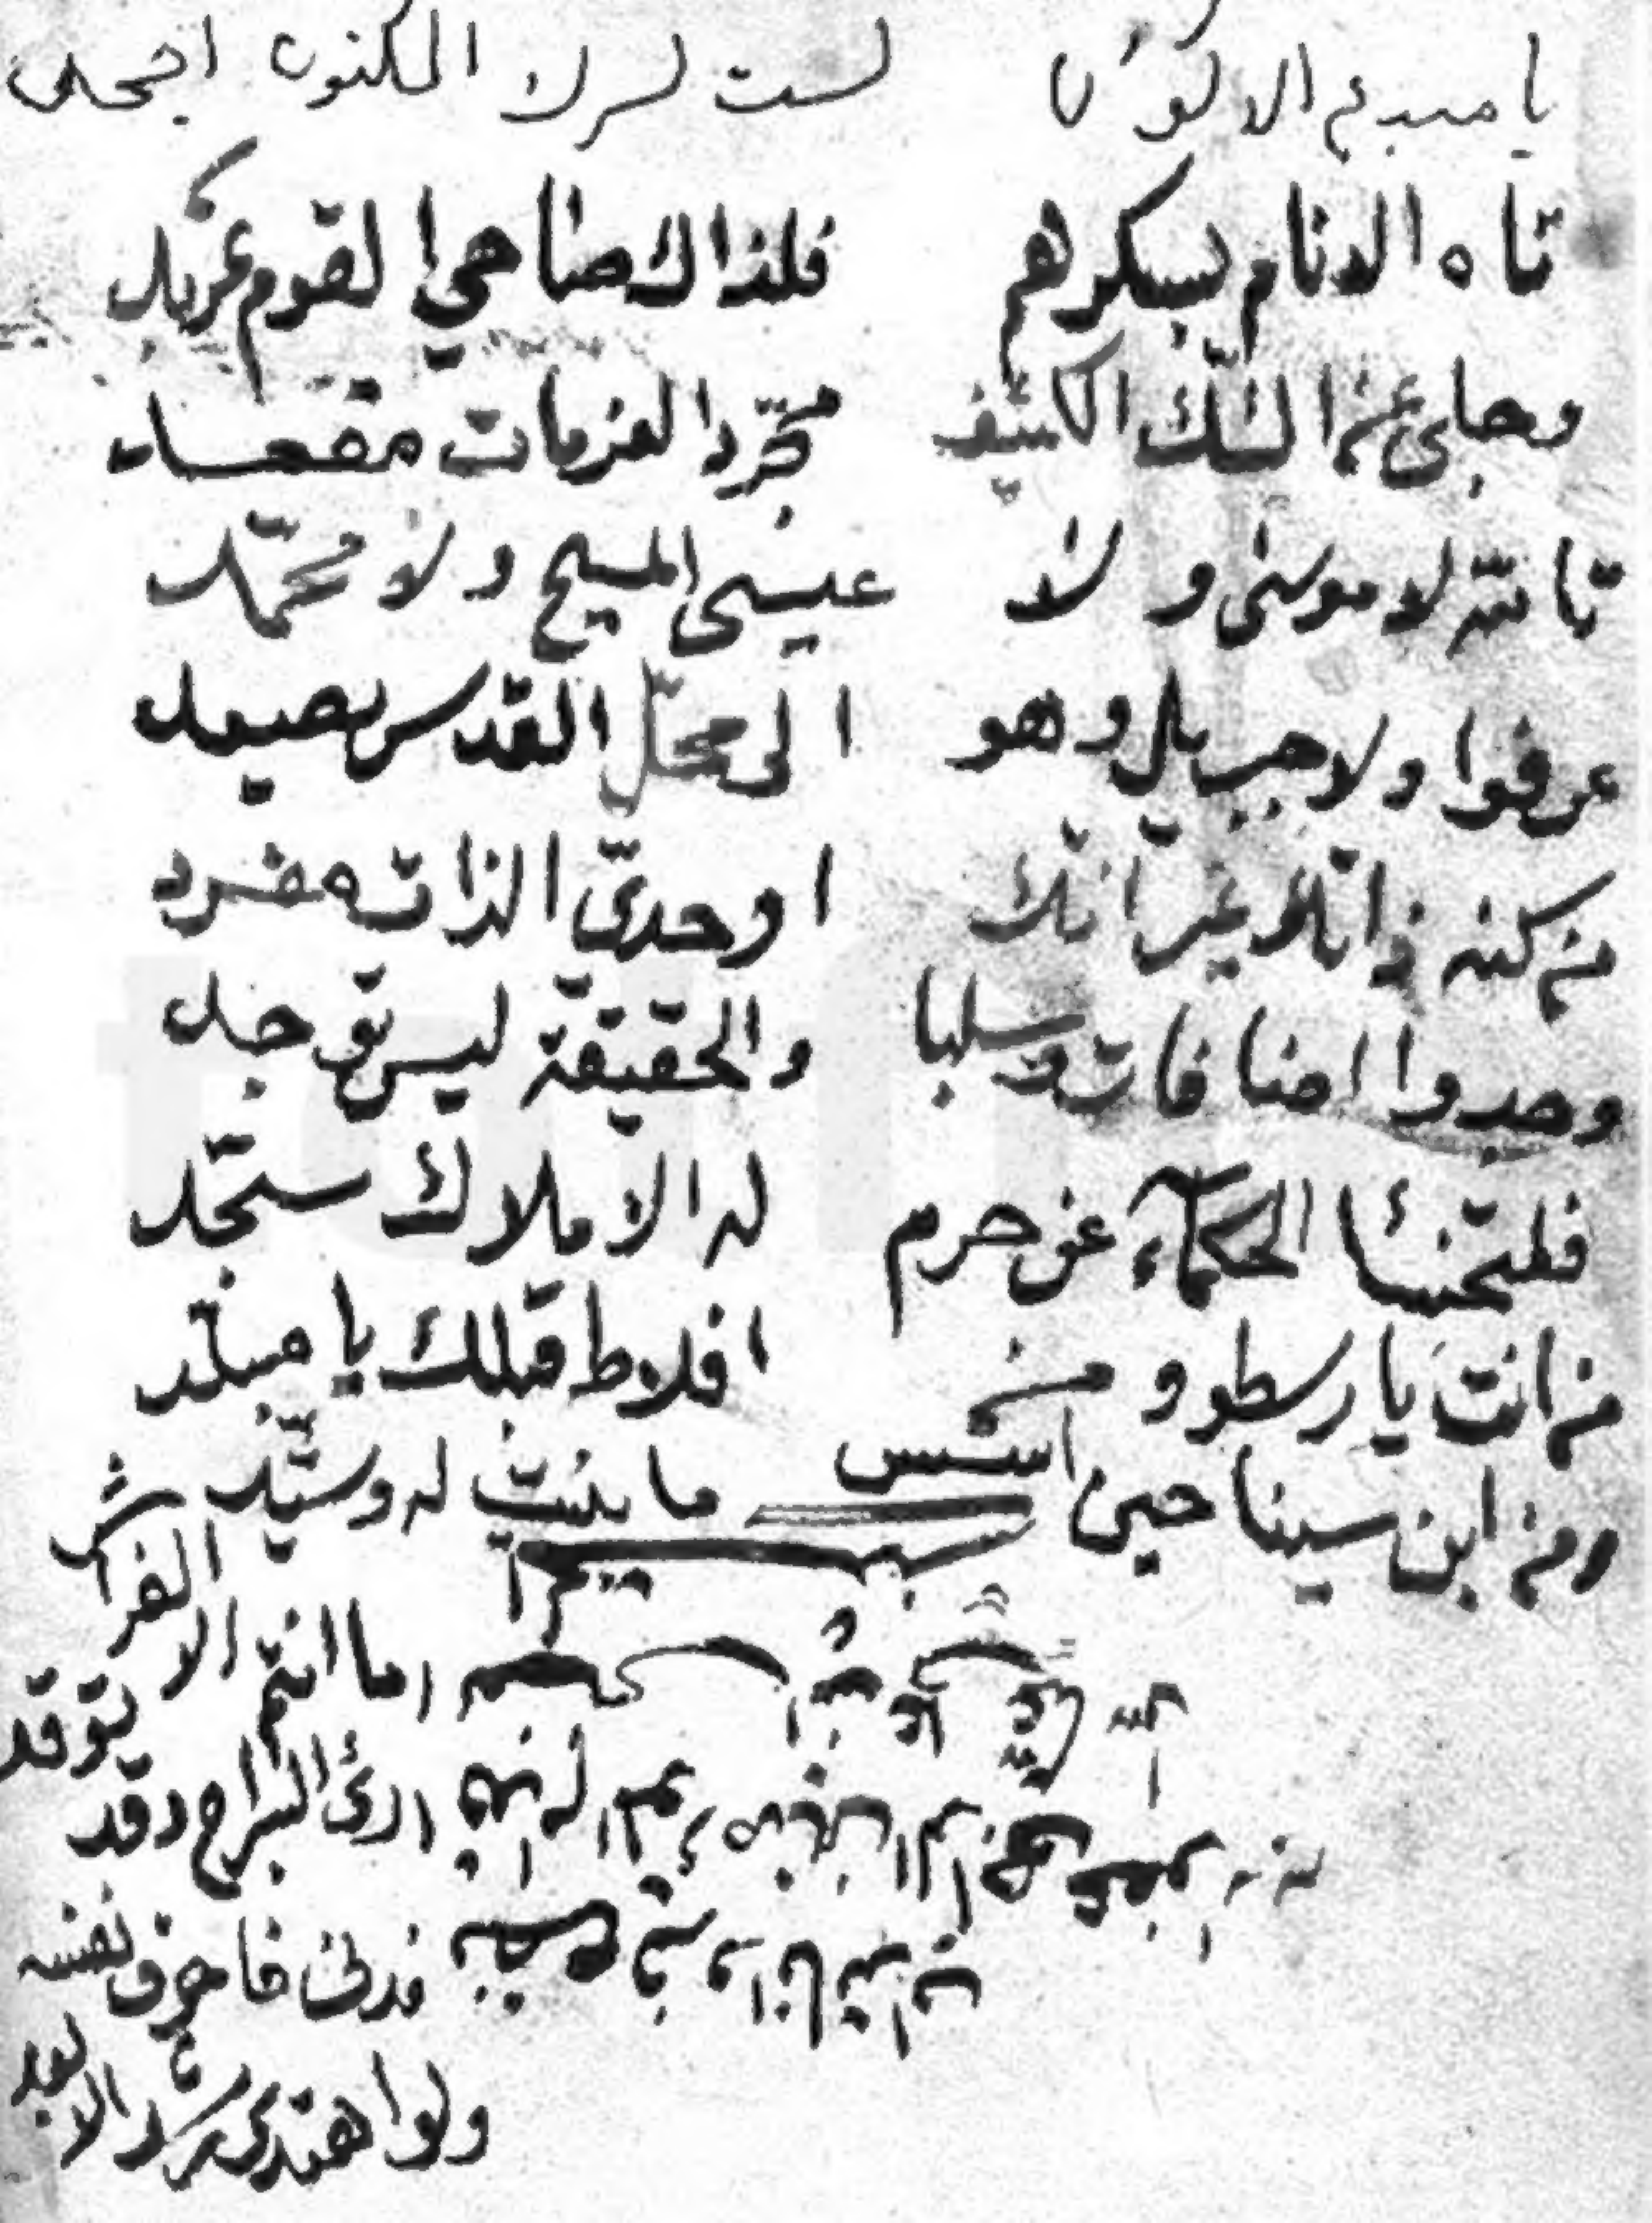 يا مبدع الاكوان لست لسرك المكنون اجحد
تاه الانام بسكرهم فلذاك صاحي القوم عربد
وجلى عن الشك الكثيف مجرد العزمات مقعد
تالله لا موسى ولا عيسى المسيح ولا محمد
عرفوا ولا جبريل وهو الى محل القدس يصعد
من كنه ذاتك غير انك اوحدي الذات مفرد
وجدوا اضافات وسلبا والحقيقة ليس توجد
فلتخسئا الحكماء عن حرم له الاملاك سجد
من انت يا رسطو ومن افلاط قبلك يا مبلد
ومن ابن سينا حين اسس ما بنيت له وشيد
ما انتم الا الفراش
راى السراج وقد توقد
فدنى فاحرق نفسه
ولو اهتدى رشدا لابعد